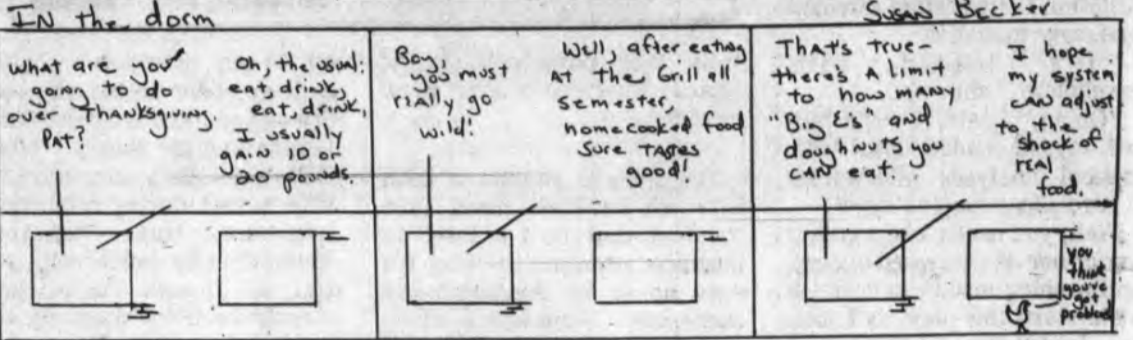 IN the dorm
SUSAN Becker
What are you
going to do
over Thanksgiving
PAT?
Oh, the usual:
eat, drink,
eat, drink,
I usually
gain 10 or
20 pounds.
Boy,
you must
really go
wild!
Well, after eating
At the Grill all
semester,
homecooked food
Sure tastes
good!
ThAT's true-
there's A limit
to how many
"Big Es" and
doughnuts you
CAN eat.
I hope
my system
CAN adjust
to the
shock of
real
food.
You
think
you've
got
problems